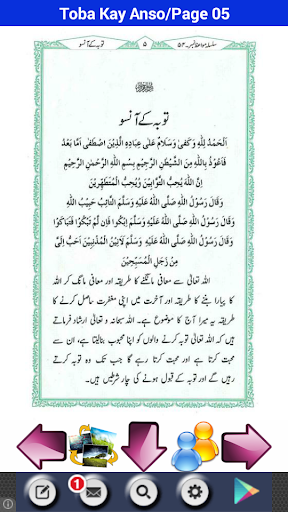 Toba Kay Anso/Page 05
سلسلہ مواعظ نمبر۔۵۴
۵
توبہ کے آنسو
توبہ کے آنسو
اَلْحَمْدُ لِلّٰهِ وَكَفٰى وَسَلَامٌ عَلٰى عِبَادِهِ الَّذِيْنَ اصْطَفٰى اَمَّا بَعْدُ
فَاَعُوْذُ بِاللّٰهِ مِنَ الشَّيْطٰنِ الرَّجِيْمِ بِسْمِ اللّٰهِ الرَّحْمٰنِ الرَّحِيْمِ
اِنَّ اللّٰهَ يُحِبُّ التَّوَّابِيْنَ وَيُحِبُّ الْمُتَطَهِّرِيْنَ
وَقَالَ رَسُوْلُ اللّٰهِ صَلَّى اللّٰهُ عَلَيْهِ وَسَلَّمَ اَلتَّائِبُ حَبِيْبُ اللّٰهِ
وَقَالَ رَسُوْلُ اللّٰهِ صَلَّى اللّٰهُ عَلَيْهِ وَسَلَّمَ اِبْكُوْا فَاِنْ لَّمْ تَبْكُوْا فَتَبَاكَوْا
وَقَالَ رَسُوْلُ اللّٰهِ صَلَّى اللّٰهُ عَلَيْهِ وَسَلَّمَ لَاَنِيْنُ الْمُذْنِبِيْنَ اَحَبُّ اِلَىَّ
مِنْ زَجَلِ الْمُسَبِّحِيْنَ
اللہ تعالیٰ سے معافی مانگنے کا طریقہ اور معافی مانگ کر اللہ
کا پیارا بننے کا طریقہ اور آخرت میں اپنی مغفرت حاصل کرنے کا
طریقہ یہ میرا آج کا موضوع ہے۔ اللہ سبحانہ و تعالیٰ ارشاد فرماتے
ہیں کہ اللہ تعالیٰ توبہ کرنے والوں کو اپنا محبوب بنالیتا ہے، ان سے
محبت کرتا ہے اور محبت کرتا رہے گا جب تک وہ توبہ کرتے
رہیں گے اور توبہ کے قبول ہونے کی چار شرطیں ہیں۔
1